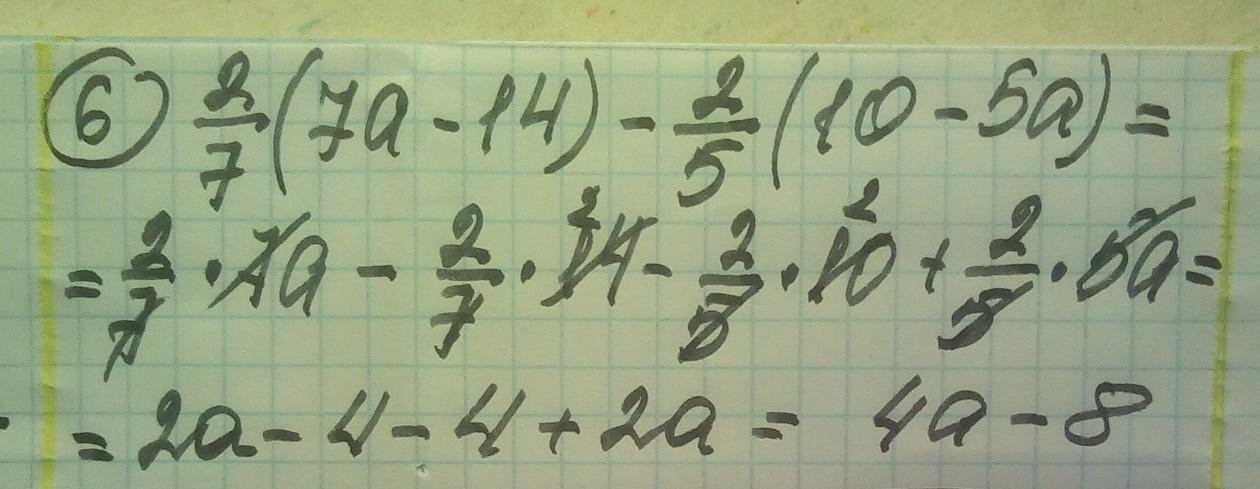 ⑥ 2/7 (7a - 14) - 2/5 (10 - 5a) =
= 2/7 · 7a - 2/7 · 14 2 - 2/5 · 10 2 + 2/5 · 5a =
= 2a - 4 - 4 + 2a = 4a - 8